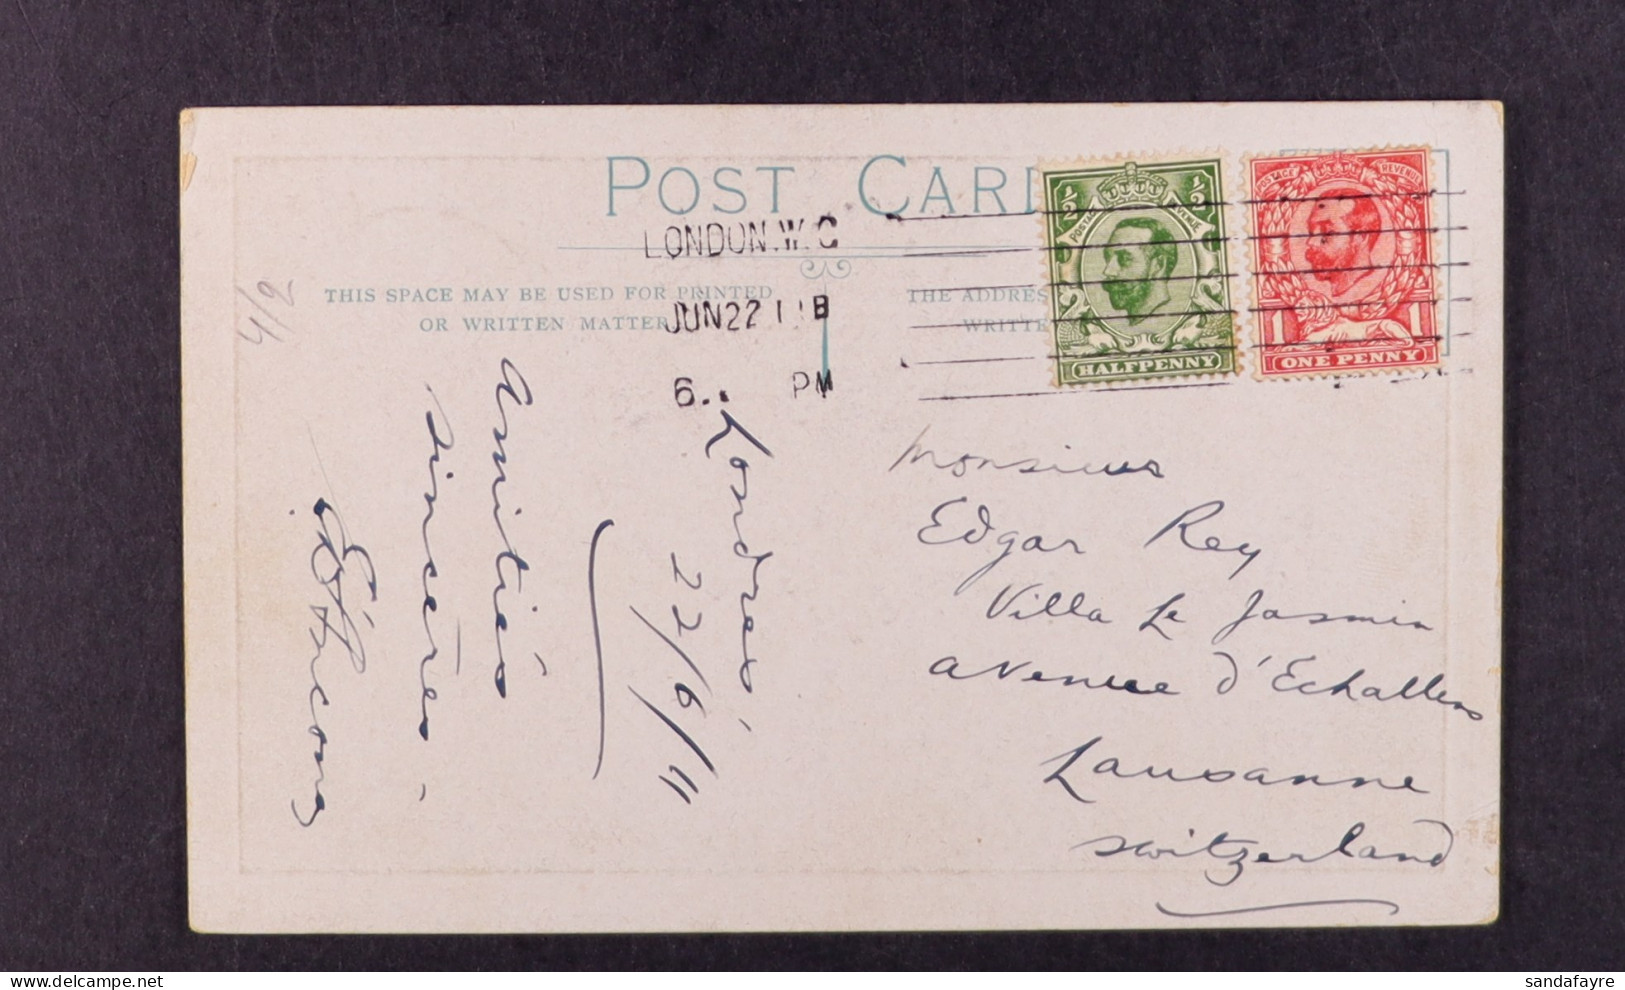 POST CARD
LONDON.W.C
JUN22 11 B
6.. PM
THIS SPACE MAY BE USED FOR PRINTED
OR WRITTEN MATTER
THE ADDRES
WRITTE
1/2 1/2
POSTAGE REVENUE
HALFPENNY
POSTAGE REVENUE
1 1
ONE PENNY
4/6
Londres,
22/6/11
Amitiés
sincères.
Monsieur
Edgar Rey
Villa Le Jasmin
Avenue d'Echallens
Lausanne
Switzerland
sandafayre